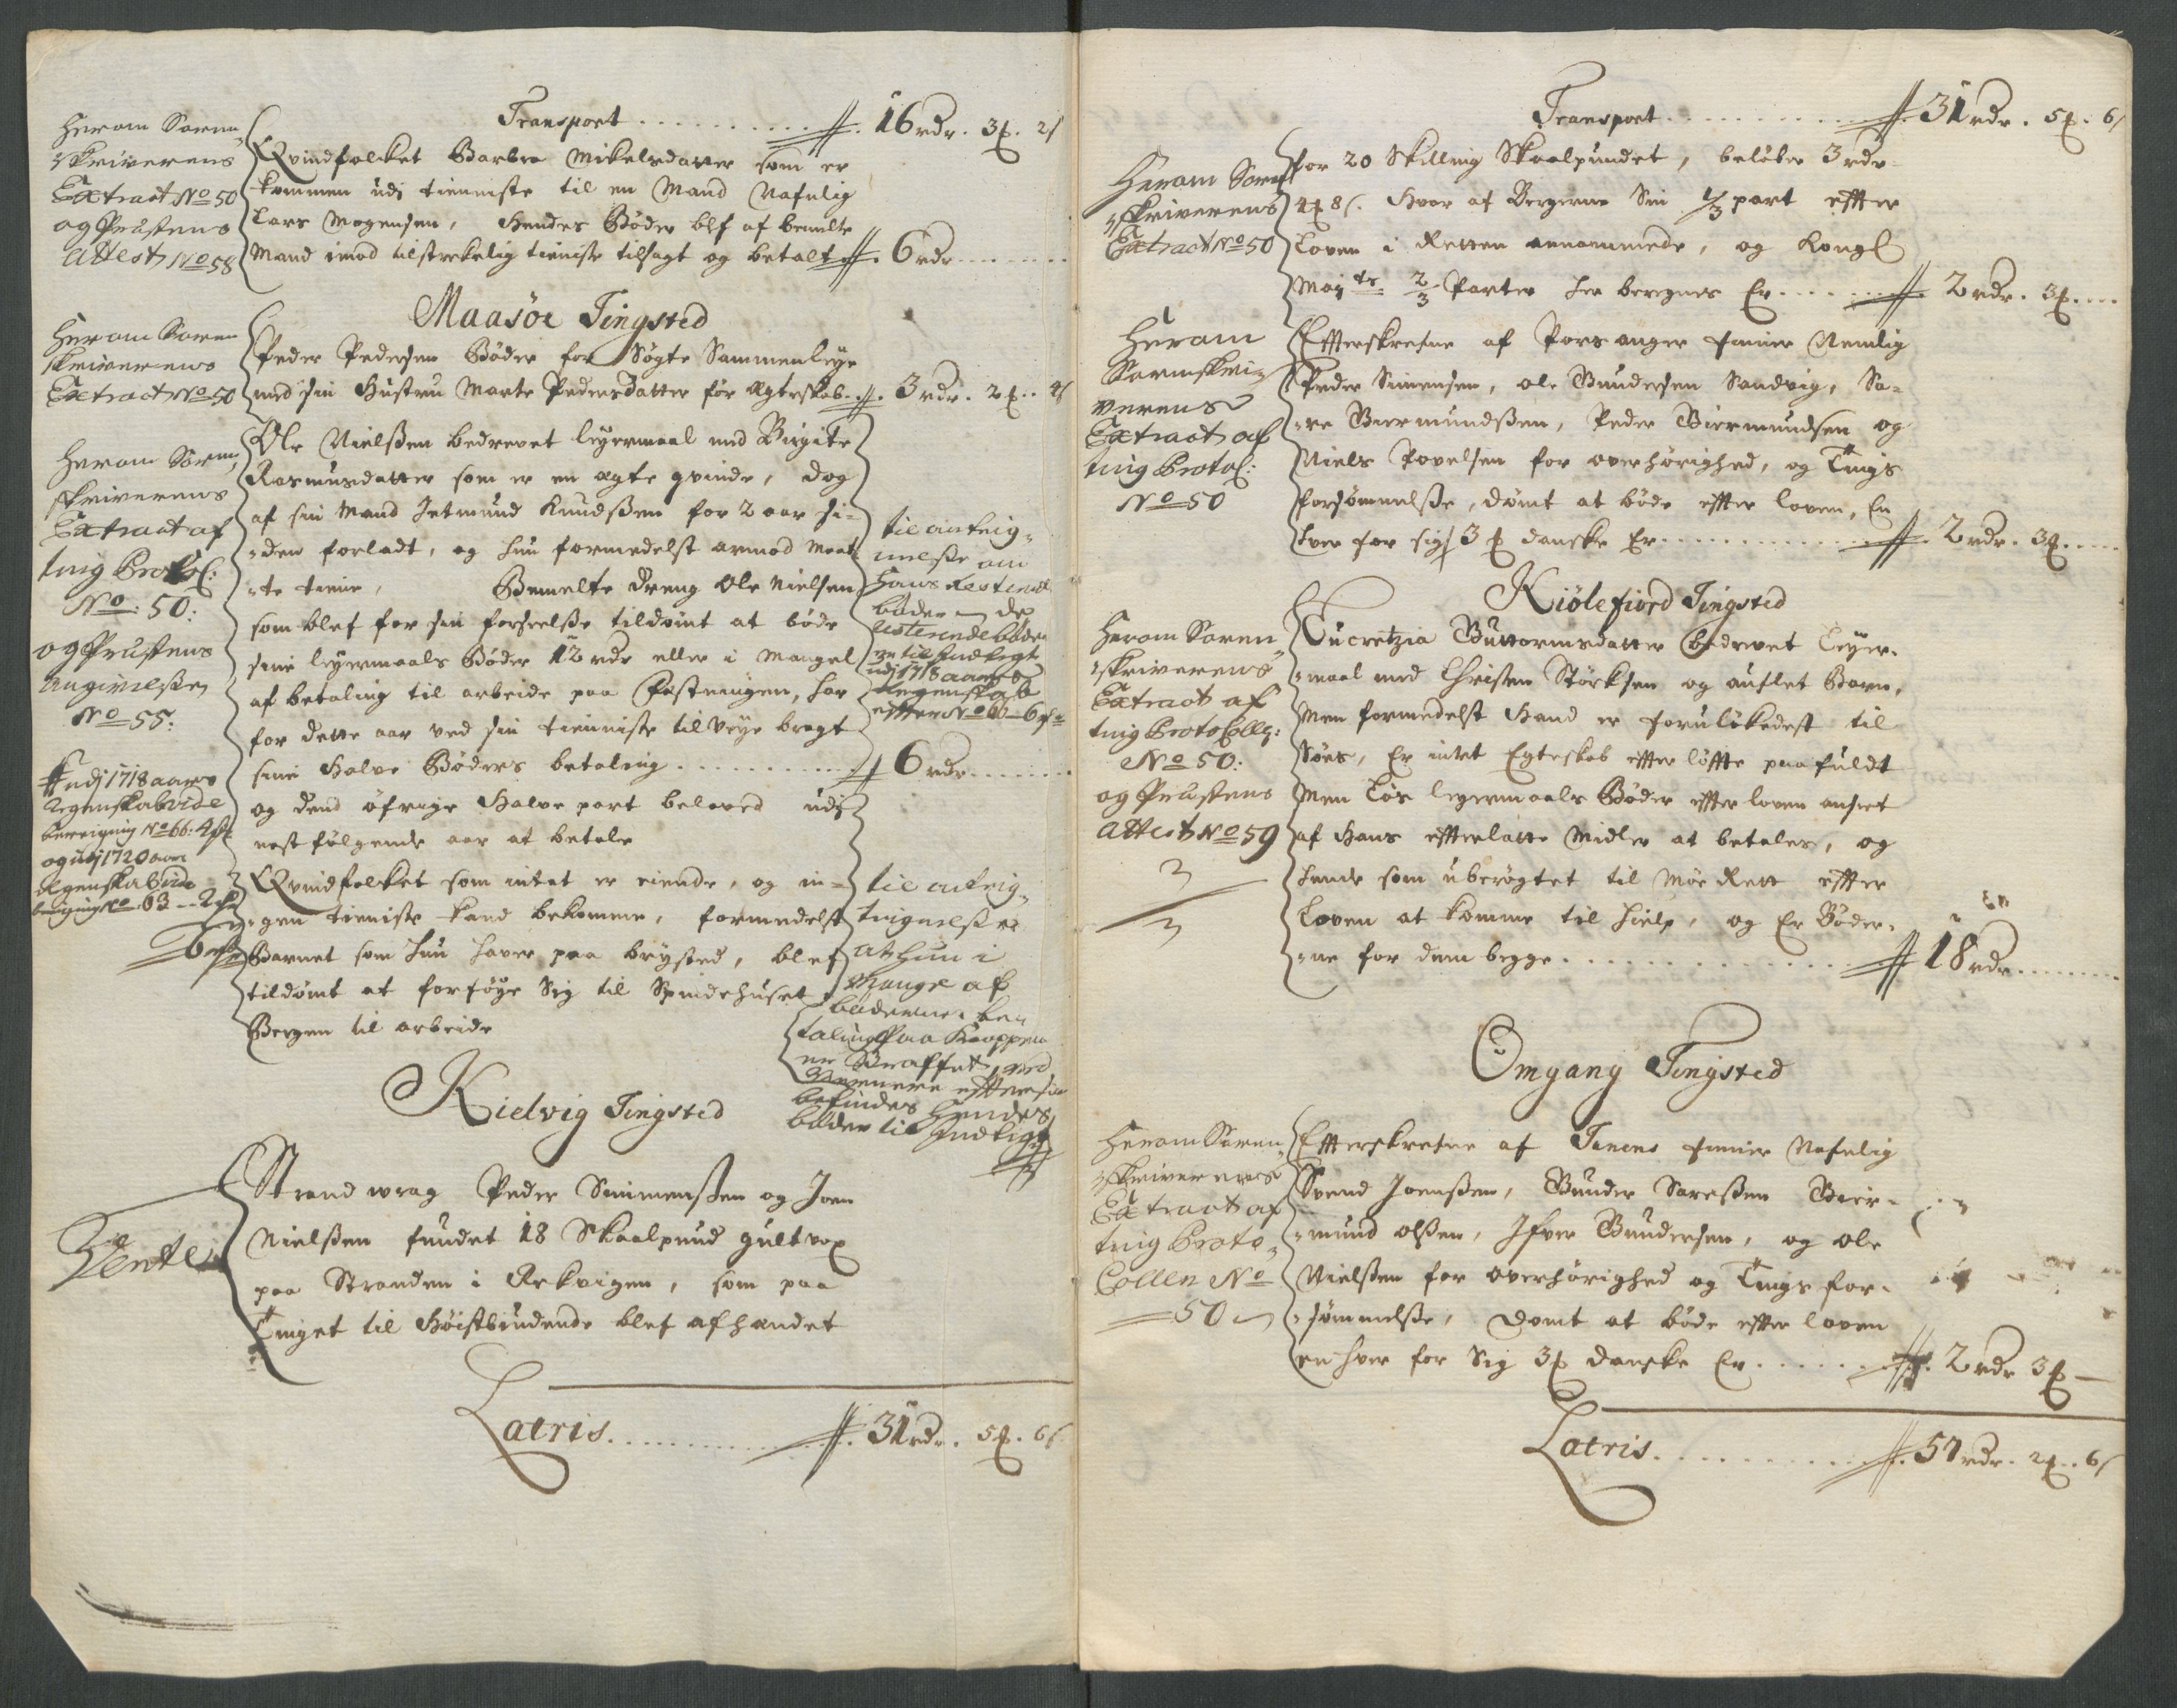 Transport . . . . . . . . . . 16 rdr. 3 ₻. 2 s
Herom Soren-
skriverens
Extract No 50
og Prustens
Attest No 58
Qvindfolket Barbra Mikelsdatter som er
kommen udj tienniste til en Mand Nafnlig
Lars Mogensen, Hendes Bøder blf af bemelte
Mand imod tilstrekelig tieniste tilsagt og betalt 6 rdr
Maasøe Tingsted
Herom Soren
skriverens
Extract No 50
Peder Pedersen Bøder for Søgte Sammenleye
med sin Hustru Marte Pedersdatter for Ægteskab 3 rdr. 2 ₻. 4 s
Herom Søren
skriverens
Extract af
ting Protol:
No: 50:
og Prustens
Angivelse
No 55:
Ole Nielsen bedrevet leyermaal med Birgite
Rasmusdatter som er en ægte qvinde, dog
af sin Mand Jetmund Knudsen for 2 aar si-
-den forladt, og hun formedelst armod maat-
-te tiene, Bemelte dreng Ole Nielsen
som blef for sin forseelse tildømt at bøde
sine leyermaals Bøder 12 rdr eller i Mangel
af betaling til arbeide paa Festningen, har
for dette aar ved sin tienniste til Veye bragt
sine Halve Bøders betaling . . . . . . . . . . 6 rdr
og dend øfrige Halve part beloved udj
nestfølgende aar at betale
til anteig-
nelse om
Hans Resterende
bøder
resterende bøder
er til Indtegt
udj 1718 aars
Regenskab
efter No 66 - 6 rdr
udj 1718 aars
Regenskab vide
beregning No 66: 4 rdr
og udj 1720 aars
Regenskab vide
beregning No 63 - 2 rdr
6 rdr
Qvindfolket som intet er eiende, og in-
-gen tieniste kand bekomme, formedelst
Barnet som hun haver paa brysted, blef
tildømt at forføye Sig til Spindehuset i
Bergen til arbeide
til anteig-
tegnelse
at hun i
Mangel af
bøderne be-
taling paa Kroppen
er straffet, med
mindre efter
befindes Hendes
bøder til Indtegt
Kielvig Tingsted
Vente
Strand wrag Peder Simmensen og Joen
Nielsen fundet 18 Skaalpund gult vox
paa Stranden i Rekvigen, som paa
Tinget til Høistbiudende blef afhandet
Latris . . . . . . . . . . 31 rdr. 5 ₻. 6 s
Transport . . . . . . . . . . 31 rdr. 5 ₻. 6 s
Herom Soren
skriverens
Extract No 50
for 20 Skilling Skaalpundet, beløber 3 rdr
4 ₻ 8 s. Hvor af Bergerne Sin 1/3 part effter
Loven i Retten annammede, og Kongl
May ts. 2/3 Parter her beregnes Er . . . . . . 2 rdr. 3 ₻.
Herom
Sorenskri-
verens
Extract af
ting Protol:
No 50
Effterskrefne af Porsanger finner Nemlig
Peder Simensen, Ole Gundersen Sandvig, Sa-
-re Biermundsen, Peder Biermundsen og
Niels Povelsen for overhørighed, og Tings
forsømmelse, dømt at bøde effter loven, En
hver for sig 3 ₻ danske Er . . . . . . . . . . 2 rdr. 3 ₻.
Kiølefiord Tingsted
Herom Soren-
skriverens
Extract af
ting ProtoColle:
No 50:
og Prustens
Attest No 59
Lucretzia Guttormsdatter bedrevet Leyer-
-maal med Christen Størksen og auflet Barn,
Men formedelst Hand er foruløkedest til
Søes, Er intet Egteskab effter løffte paafuldt
Men Løs leyermaals Bøder effter loven ansaet
af Hans effterlatte Midler at betales, og
hende som uberøgtet til Møe Rett effter
Loven at komme til hielp, og Er Bøder-
-ne for dem begge . . . . . . . . . . 18 rdr
Omgang Tingsted
Herom Soren-
skriverens
Extract af
ting Proto-
Collen No
50
Effterskrefne af Tanens finner Nafnlig
Svend Joensen, Gunder Saresen Bier-
-mund Olsen, Ifver Gundersen, og Ole
Nielsen for overhørighed og Tings for-
-sømmelse, Domt at bøde effter loven
en hver for Sig 3 ₻ danske Er . . . . . . 2 rdr 3 ₻
Latris . . . . . . . . . . 57 rdr. 2 ₻. 6 s